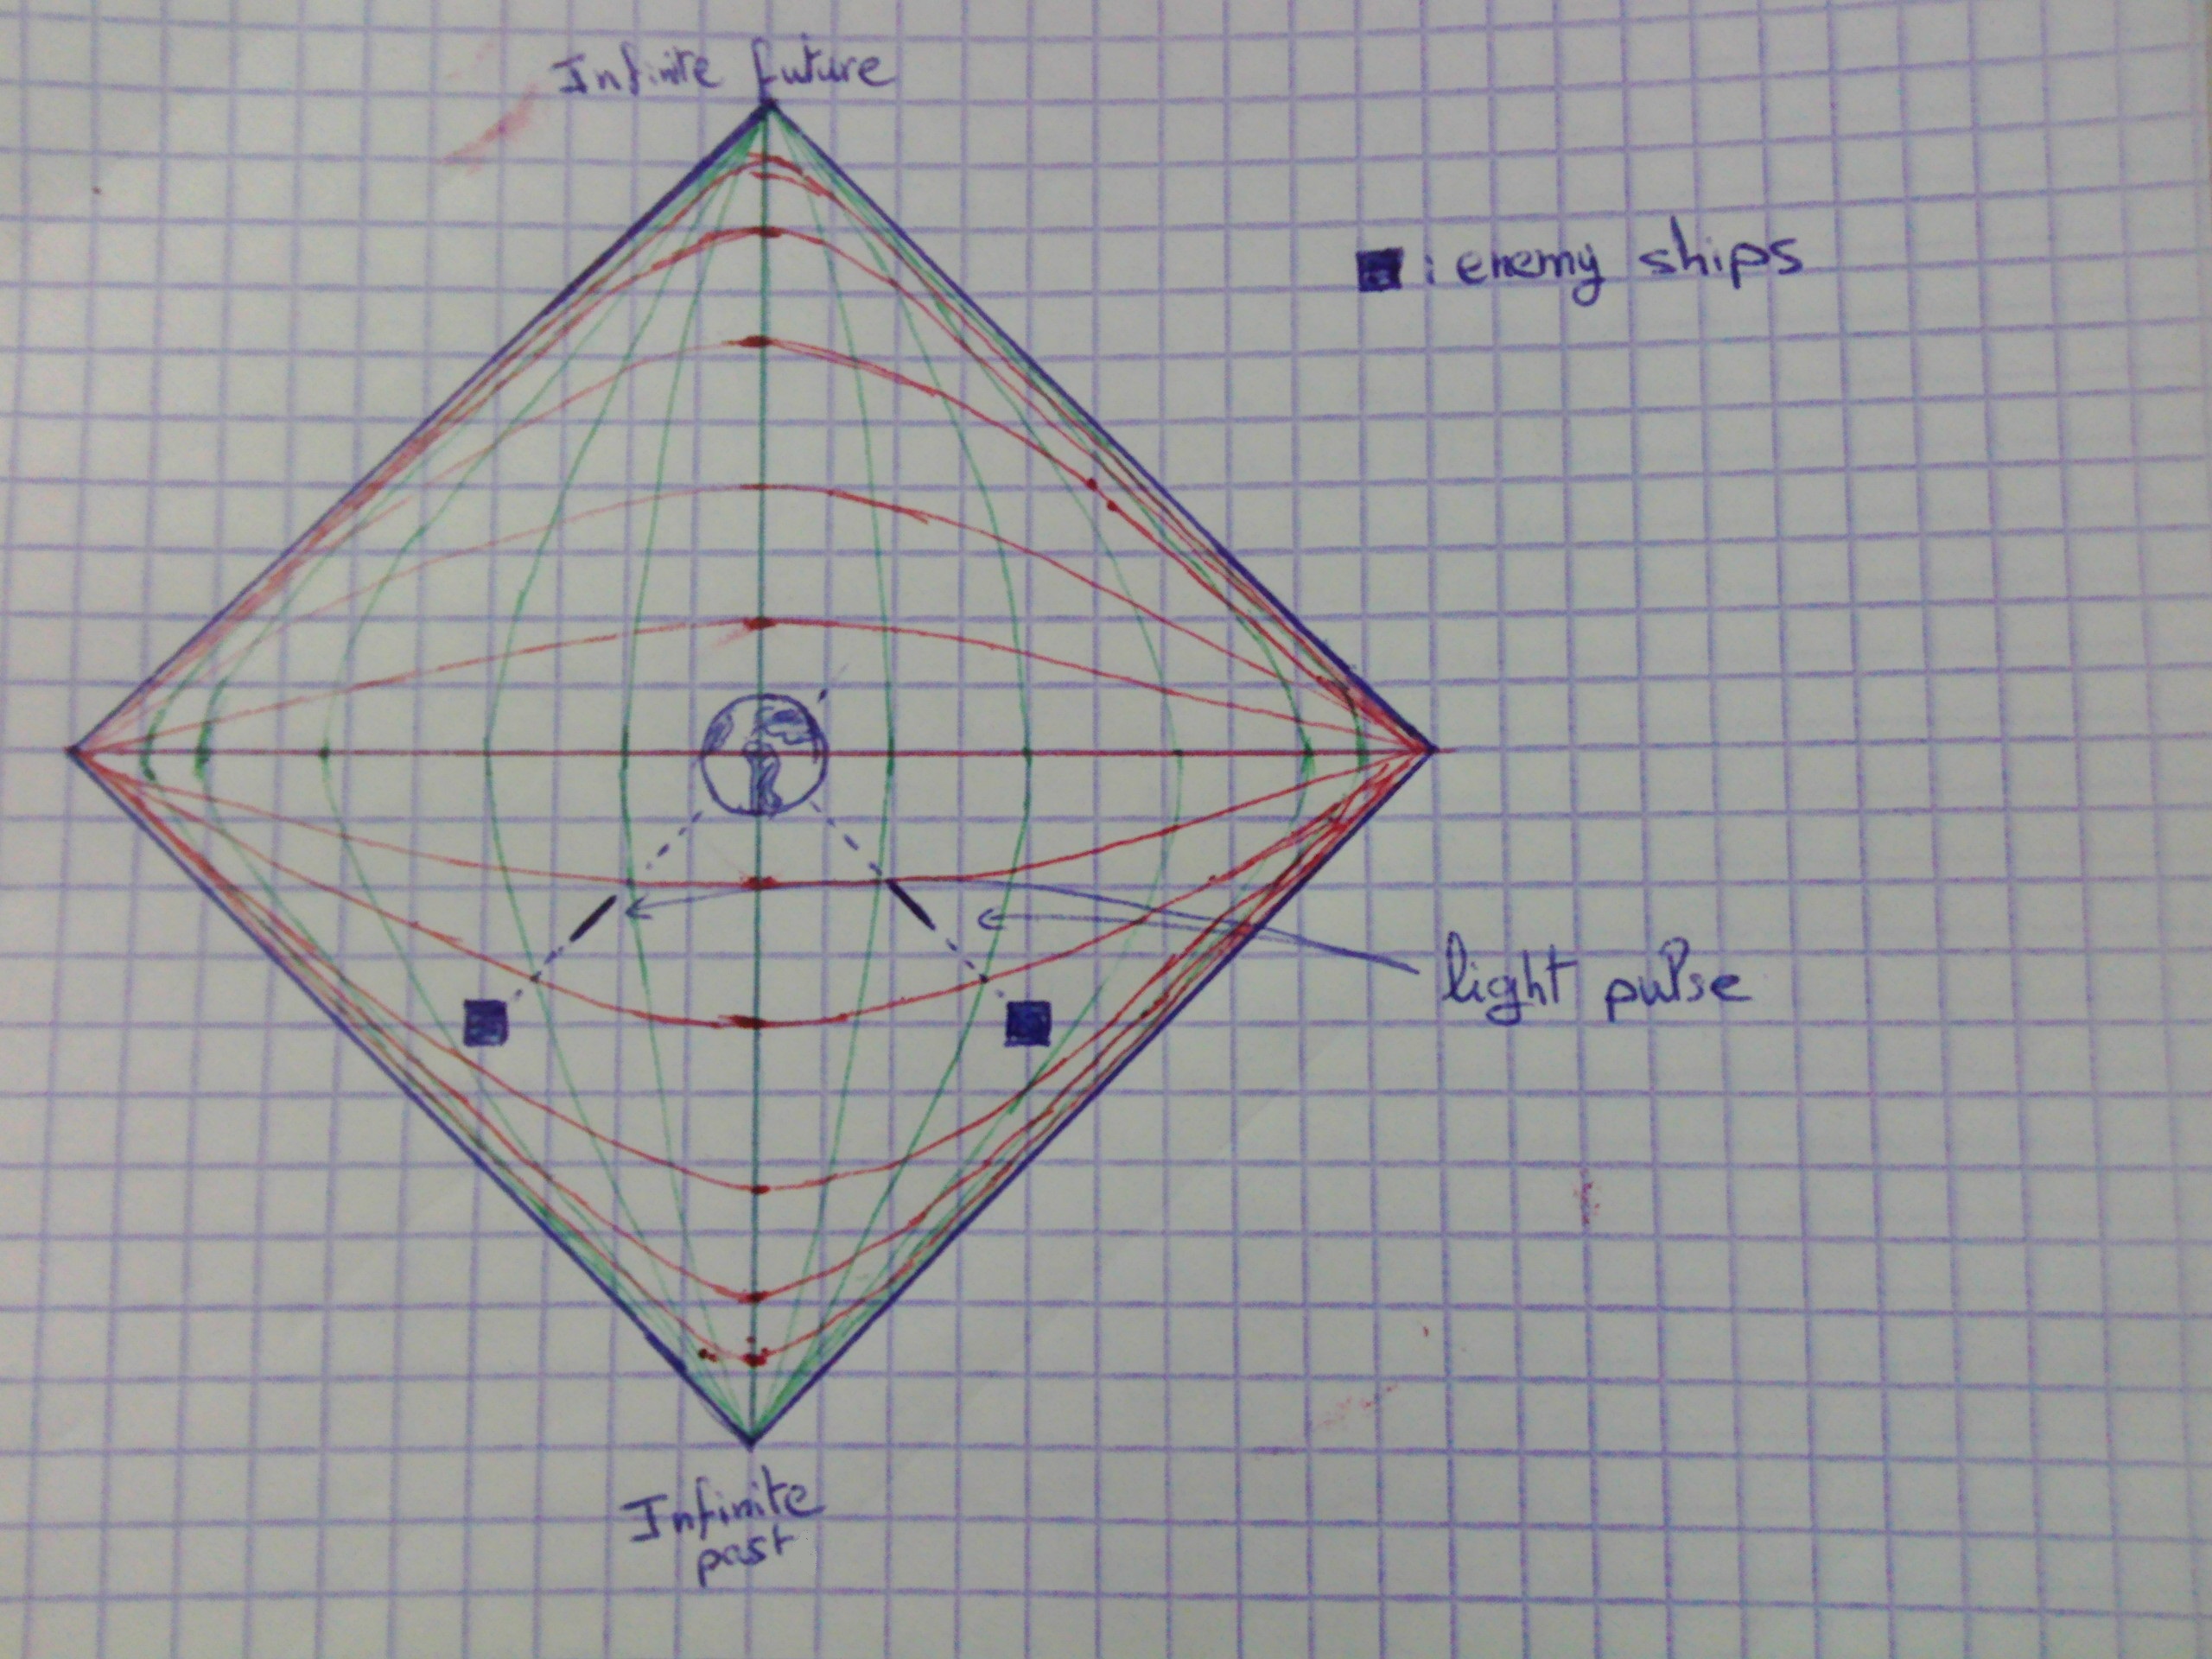 Infinite future
: enemy ships
light pulse
Infinite
past